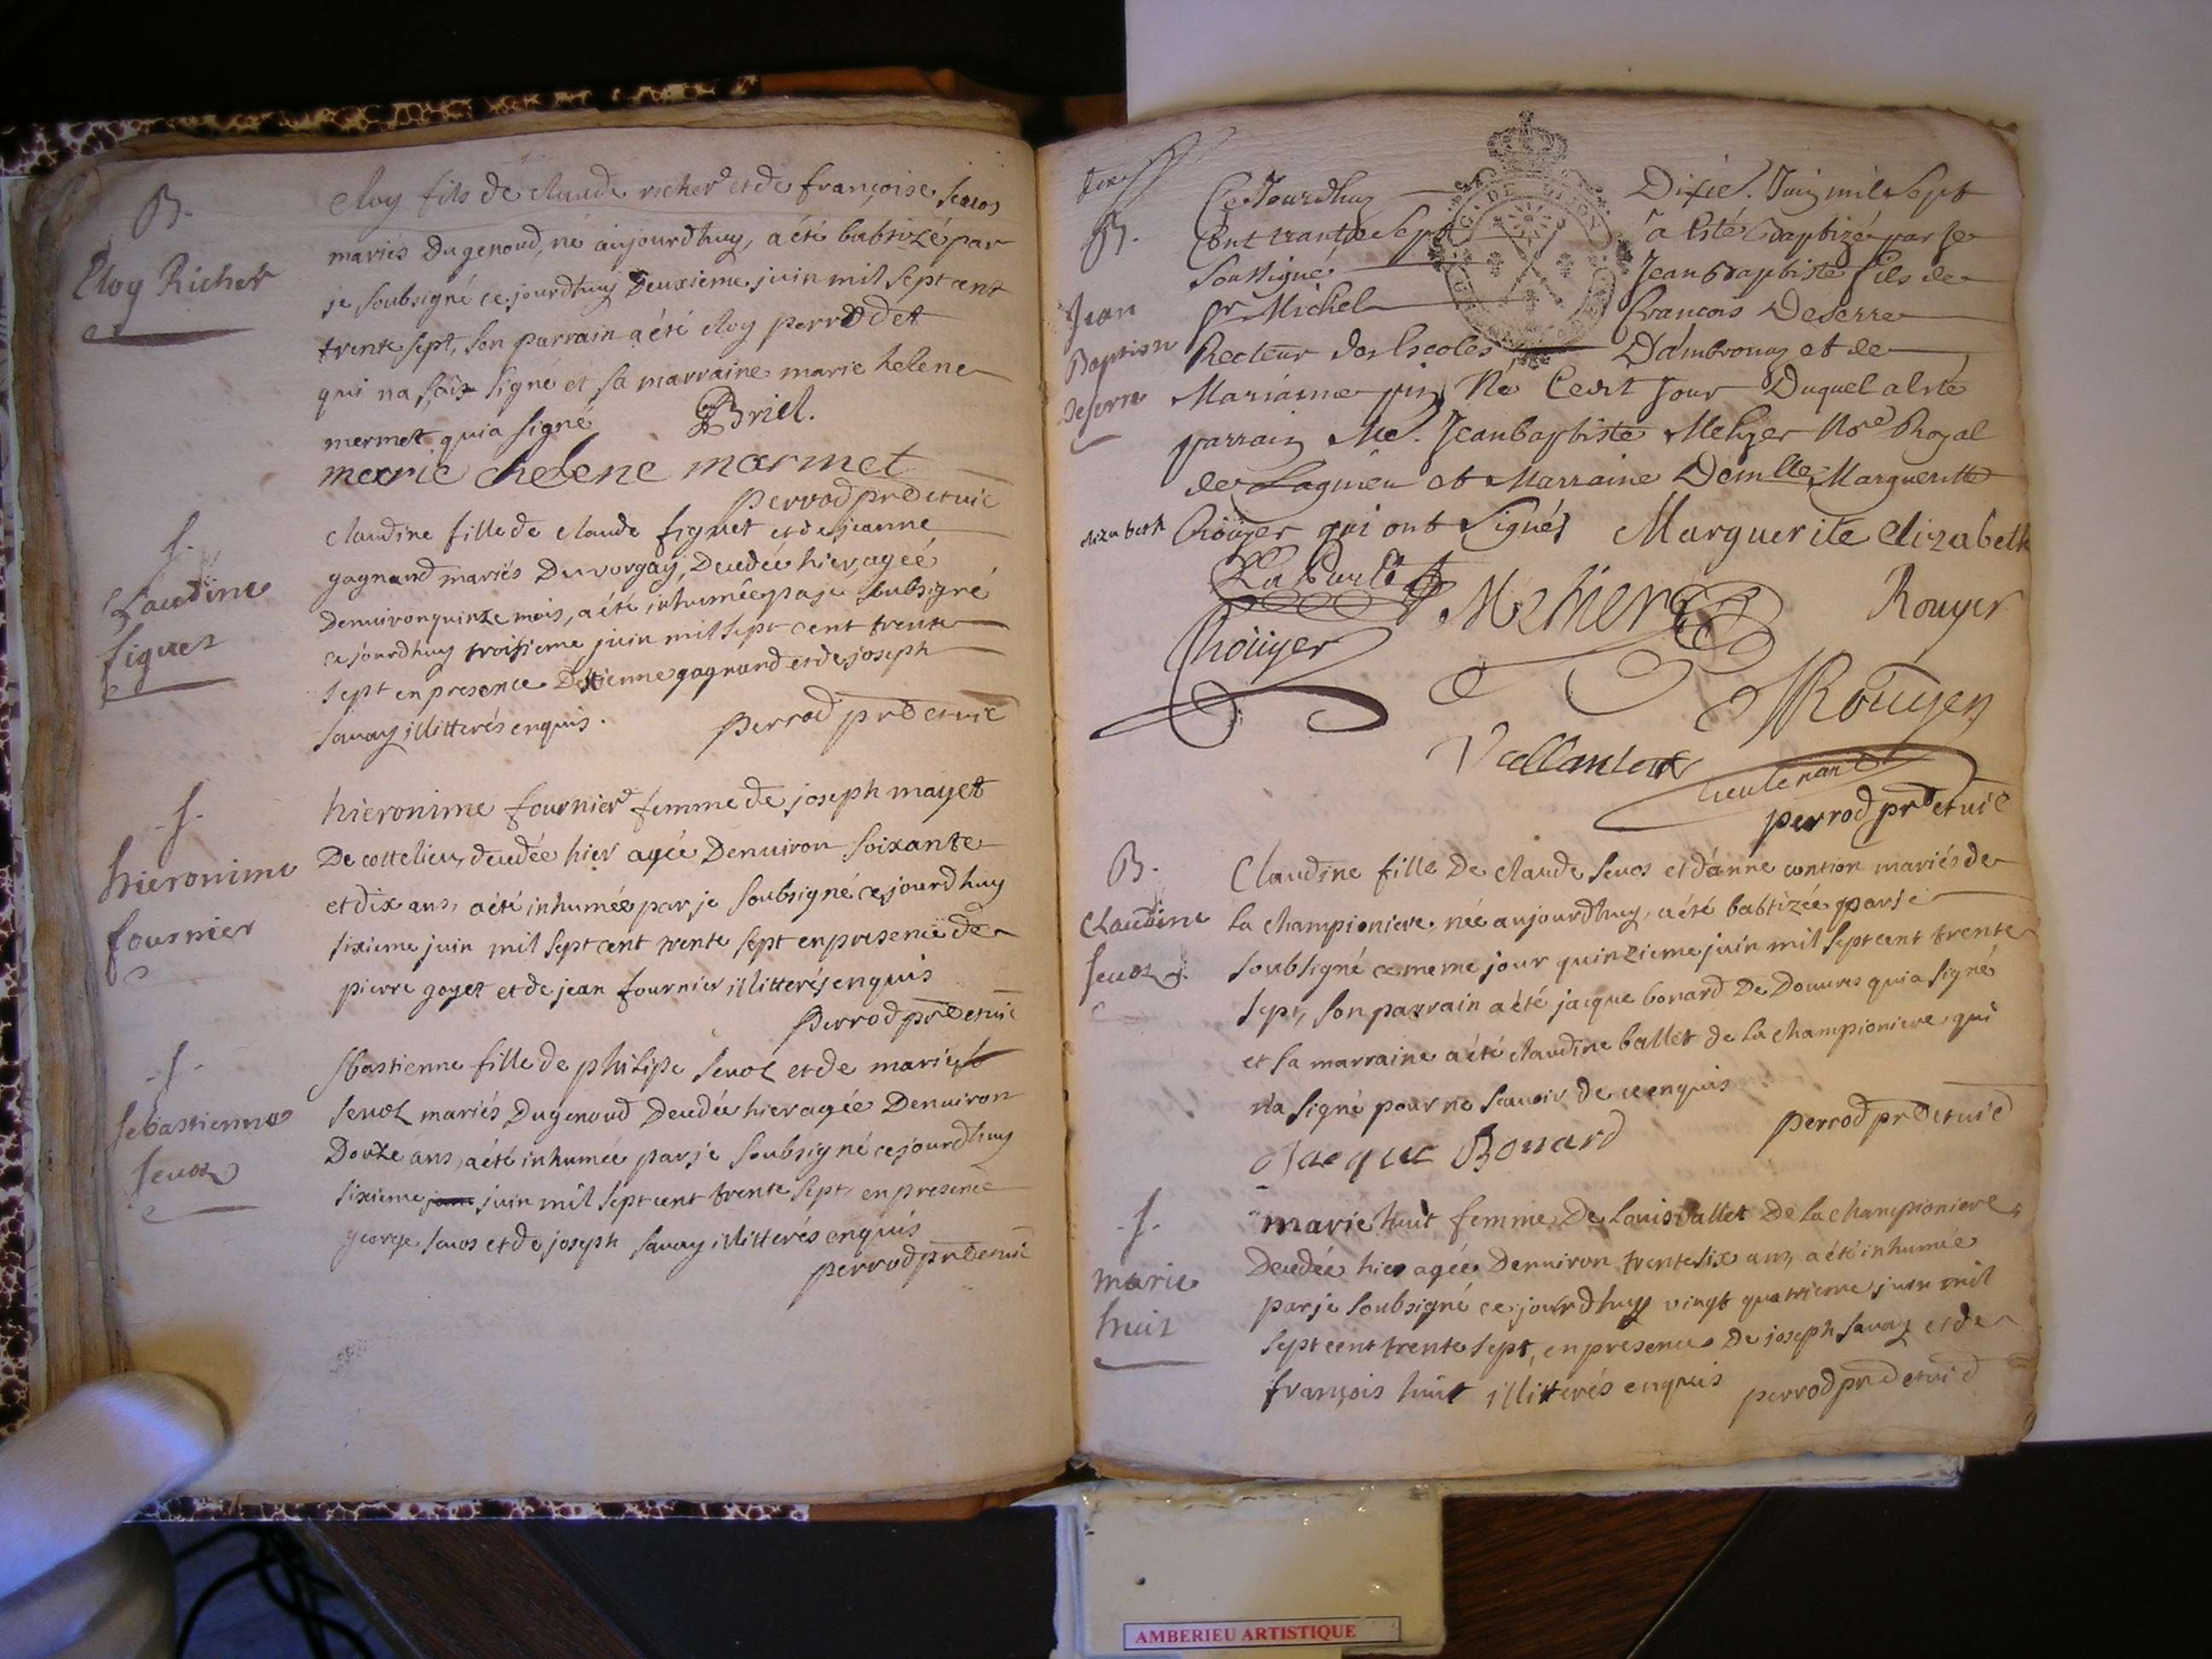 B.
Eloy Richer
eloy fils de claude richerd et de françoise seuos
mariés Dugenoud, né aujourdhuy, a été babtizé par
je soubsigné ce jourdhuy Deuxieme juin mil sept cent
trente sept, son parrain a été eloy perrodet
qui na sçû signé et sa marraine marie helene
mermet qui a signé Briel.
marie helene marmet
perrod prd et vic
f.
Claudine
figuet
claudine fille de claude figuet et de jeanne
gagnand mariés Du vorgay, Decedée hier, agée
Denuiron quinze mois, a été inhumée par je soubsigné
ce jourdhuy troisieme juin mil sept cent trente
sept en presence Destienne gagnand et de joseph
sauay illitterés enquis. perrod prd et vic
f.
hieronime
fournier
hieronime fournierd femme de joseph mayet
De cottelieu, decedée hier agée Denuiron soixante
et dix ans, a été inhumée par je soubsigné ce jourdhuy
sixieme juin mil sept cent trente sept en presence de
pierre goyet et de jean fournier illitterés enquis
perrod prd et vic
f.
sebastienne
seuoz
sbastienne fille de philipe seuoz et de marie
seuoz mariés Dugenoud Decedée hier agée Denuiron
Douze ans, a été inhumée par je soubsigné ce jourdhuy
sixieme juin mil sept cent trente sept en presence
george seuos et de joseph sauay illitterés enquis
perrod prd et vic
B.
Jean
Baptiste
Deserre
Ce Jourdhuy Dixie. Juin mil Sept
Cent trante Sept a esté Baptizé par Je
Soussigné Jean Baptiste fils de
Sr Michel francois Deserre
Recteur des Escoles Dambronay et de
Mariamne pin Né Cedit Jour Duquel a esté
parrain Me. Jean Baptiste Mehier Nore Royal
de Lagnieu et Marraine Demlle Margueritte
elizabeth Roüyer qui ont Signés Marguerite elizabeth
Mehier Rouyer
Roüyer
Rouyer
lieutenant
perrod prd et vic
B.
Claudine
seuoz
Claudine fille De claude seuos et danne contion mariés de
la championiere, née aujourdhuy, a été babtizée par je
soubsigné ce meme jour quinzieme juin mil sept cent trente
sept, son parrain a été jacque bonard De Douures qui a signé
et sa marraine a été claudine ballet de la championiere, qui
n'a signé pour ne sauoir de ce enquis
Jacque Bonard perrod prd et vic
f.
marie
huit
marie huit femme De Louis ballet De la championiere,
Decedée hier agée Denuiron trente six ans, a été inhumée
par je soubsigné ce jourdhuy vingt quatrieme juin mil
sept cent trente sept, en presence De joseph sauay et de
françois huit illitterés enquis perrod prd et vic
AMBERIEU ARTISTIQUE